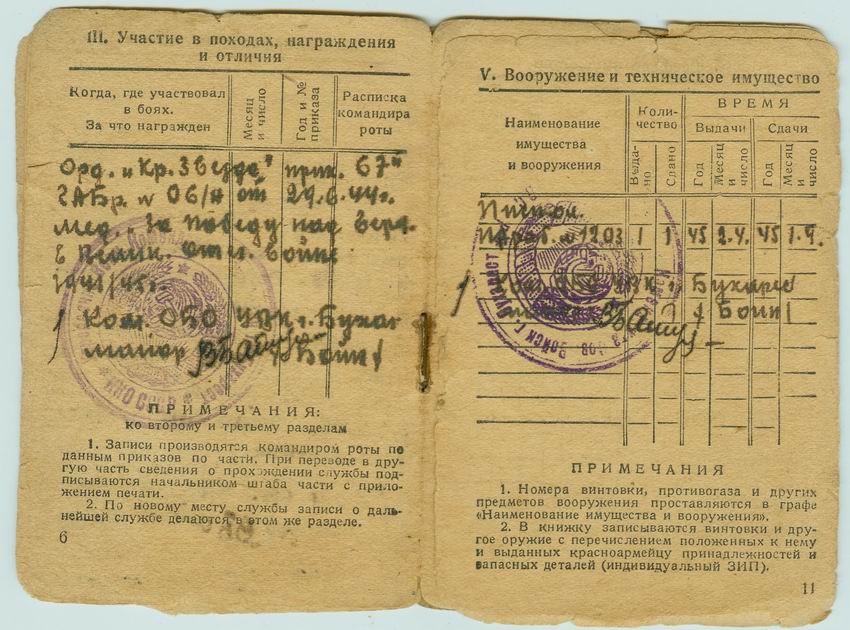 III. Участие в походах, награждения
и отличия
Когда, где участвовал
в боях.
За что награжден
Месяц
и число
Год и №
приказа
Расписка
командира
роты
Орд. „Кр. Звезда" прик. 67
ГАБр. № 06/н от 29.6.44г.
Мед. „За победу над Герм.
в Велик. от. войне
1941/45г.
Ком. ОБО УВК г. Бухарест
майор
ПРИМЕЧАНИЯ:
ко второму и третьему разделам
1. Записи производятся командиром роты по
данным приказов по части. При переводе в дру-
гую часть сведения о прохождении службы под-
писываются начальником штаба части с прило-
жением печати.
2. По новому месту службы записи о даль-
нейшей службе делаются в этом же разделе.
6
V. Вооружение и техническое имущество
Наименование
имущества
и вооружения
Коли-
чество
Выда-
но
Сдано
ВРЕМЯ
Выдачи
Сдачи
Год
Месяц
и
число
Год
Месяц
и
число
1203 1 1 45 2.4. 45 1.9.
Ком. ОБО УВК г. Бухарест
майор
ПРИМЕЧАНИЯ
1. Номера винтовки, противогаза и других
предметов вооружения проставляются в графе
«Наименование имущества и вооружения».
2. В книжку записываются винтовки и дру-
гое оружие с перечислением положенных к нему
и выданных красноармейцу принадлежностей и
запасных деталей (индивидуальный ЗИП).
11